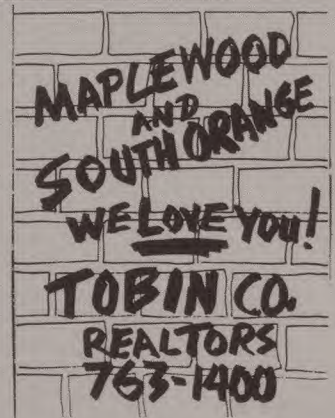 MAPLEWOOD
AND
SOUTH ORANGE
WE LOVE YOU!
TOBIN CO.
REALTORS
763-1400